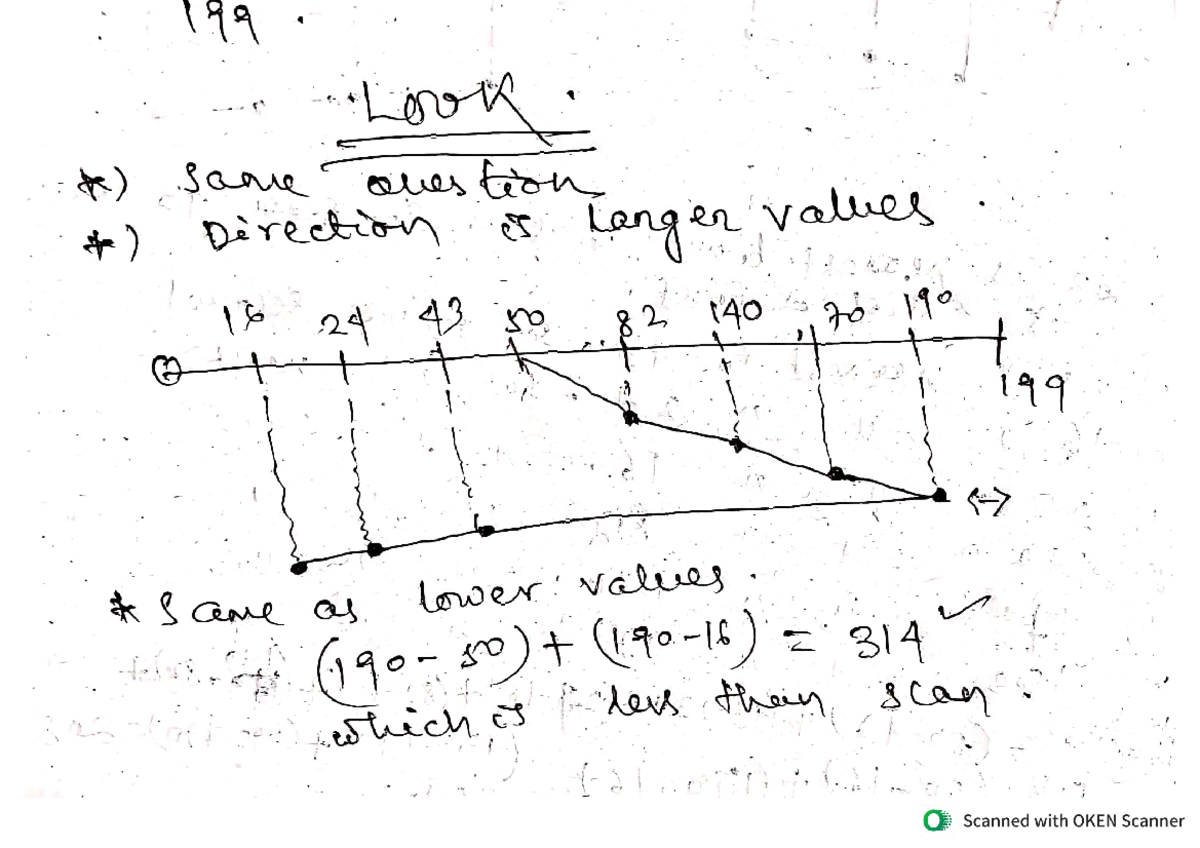 199 .
LOOK .
*) Same question
*) Direction is Larger values .
16 24 43 50 82 140 '70 190
0 199
* Same as lower values .
(190 - 50) + (190 - 16) = 314 ✓
which is less than scan .
Scanned with OKEN Scanner